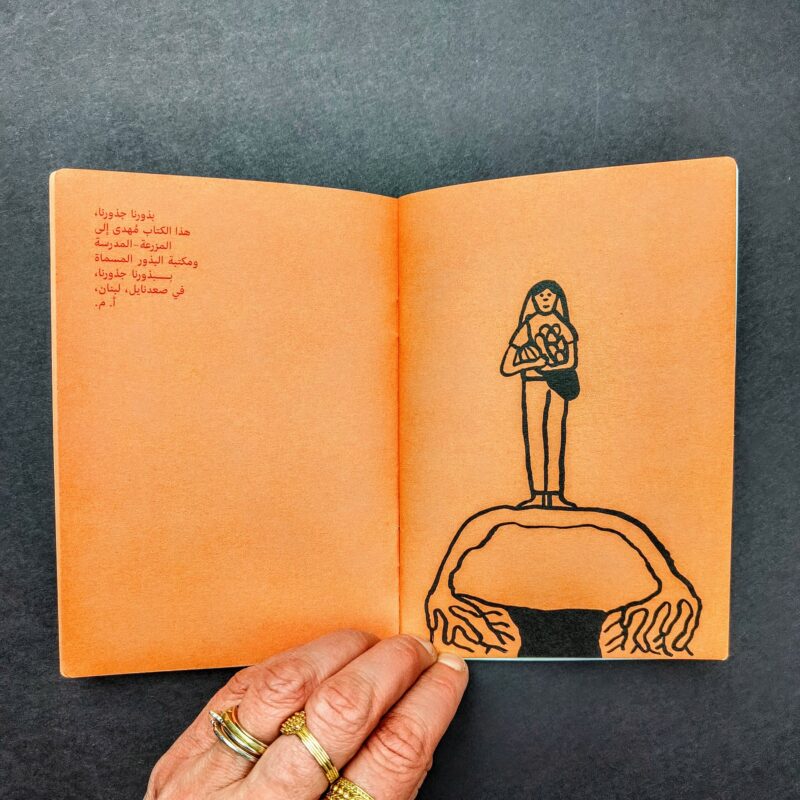 بذورنا جذورنا،
هذا الكتاب مُهدى إلى
المزرعة-المدرسة
ومكتبة البذور المسماة
بـــبذورنا جذورنا،
في سعدنايل، لبنان،
أ. م.